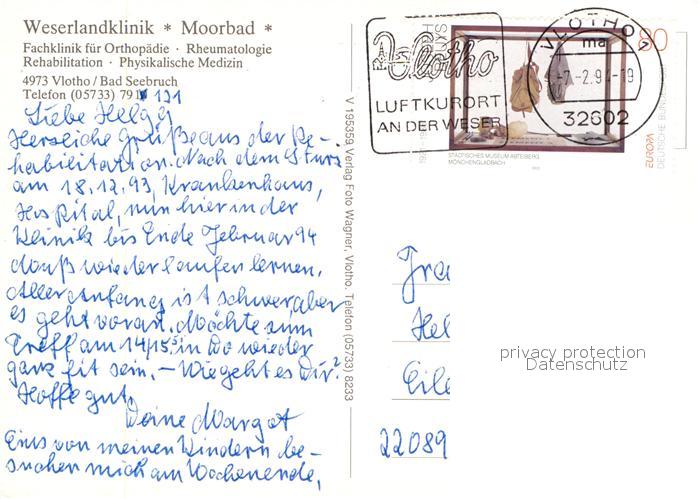 Weserlandklinik * Moorbad *
Fachklinik für Orthopädie · Rheumatologie
Rehabilitation · Physikalische Medizin
4973 Vlotho / Bad Seebruch
Telefon (05733) 791 131
Liebe Helga
Herzliche Grüße aus der Re-
habilitation. Nach dem Sturz
am 18.12.93, Krankenhaus,
Hospital, nun hier in der
Klinik bis Ende Februar 94
muß wieder laufen lernen.
Aller Anfang ist schwer aber
es geht voran. Möchte zum
Treff am 14/15.5 in Do wieder
ganz fit sein. – Wie geht es Dir?
Hoffe gut.
Deine Margot
Eins von meinen Kindern be-
suchen mich am Wochenende.
V 195359 Verlag Foto Wagner, Vlotho, Telefon (05733) 8233
Vlotho
LUFTKURORT
AN DER WESER
VLOTHO
ma
32602
80
STÄDTISCHES MUSEUM ABTEIBERG
MÖNCHENGLADBACH
EUROPA
DEUTSCHE BUNDESPOST
Fra
Hel
Eile
22089
privacy protection
Datenschutz